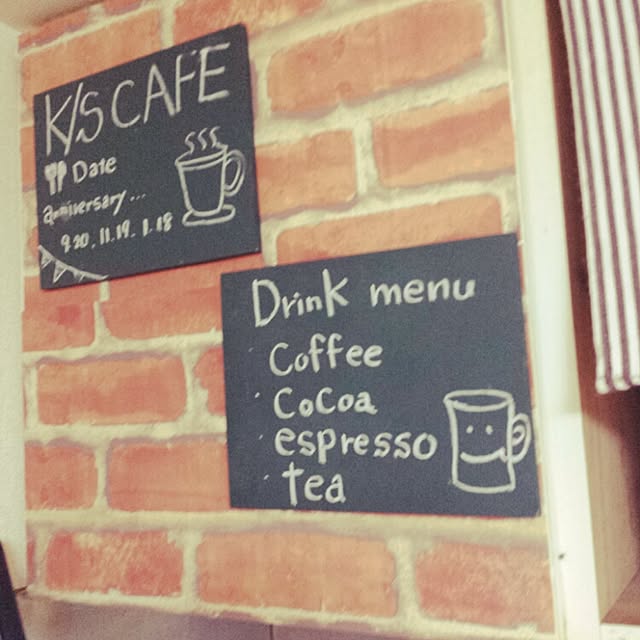 K/S CAFE
Date
anniversary...
9.20.11.19.1.18
Drink menu
· Coffee
· CoCoa
· espresso
· tea